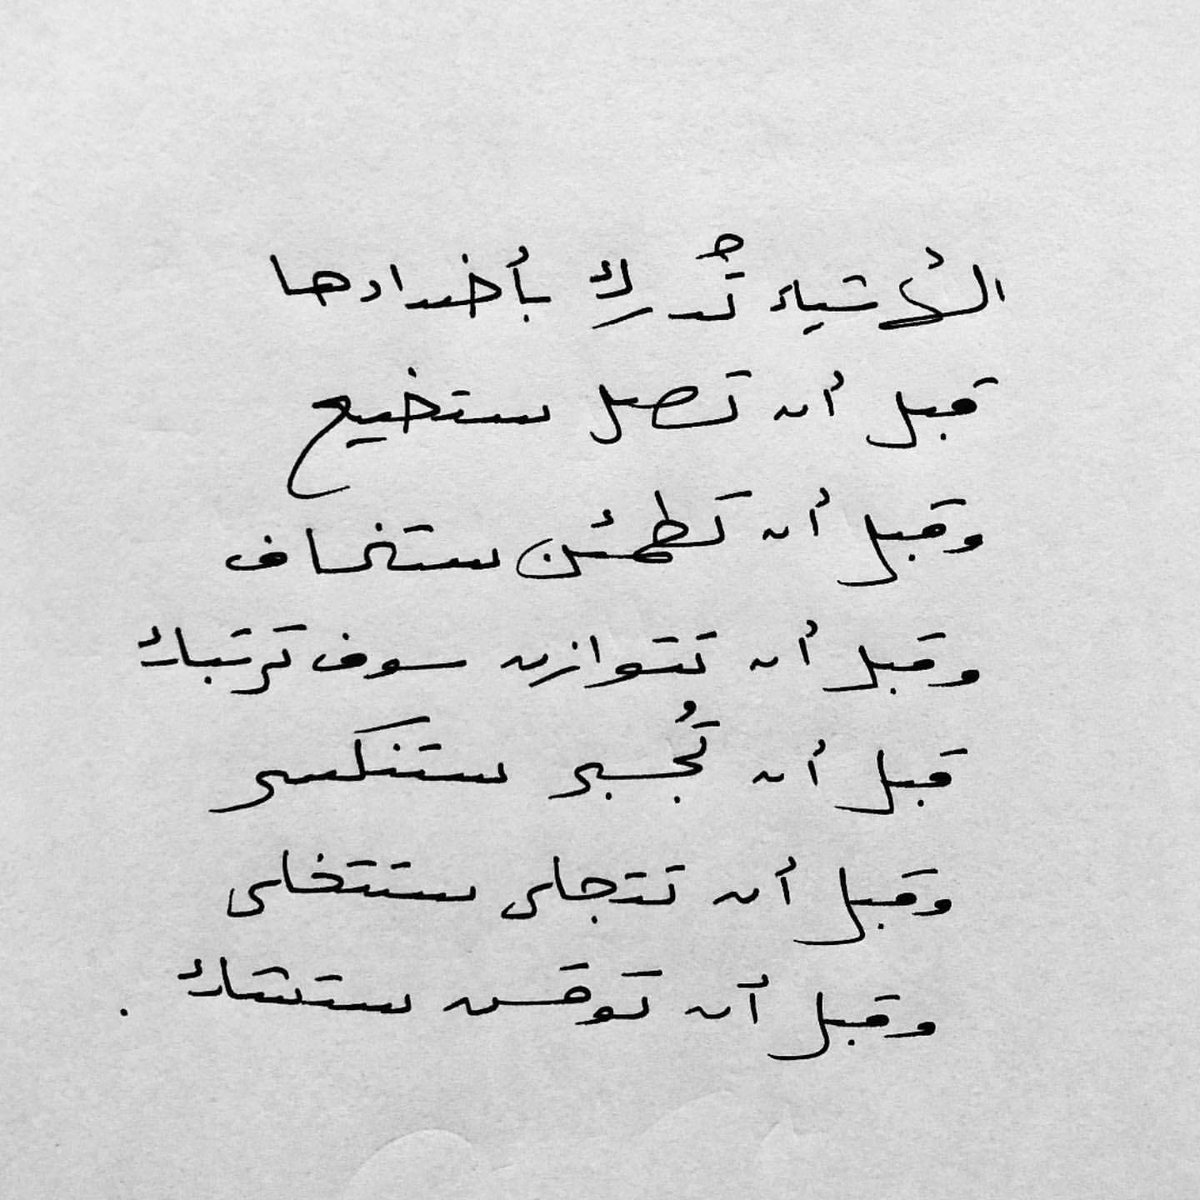 الأشياء تُدرك بأضدادها
قبل أن تصل ستضيع
وقبل أن تطمئن ستخاف
وقبل أن تتوازن سوف ترتبك
قبل أن تُجبر ستنكسر
وقبل أن تتجلى ستتخلى
وقبل أن توقن ستشك .